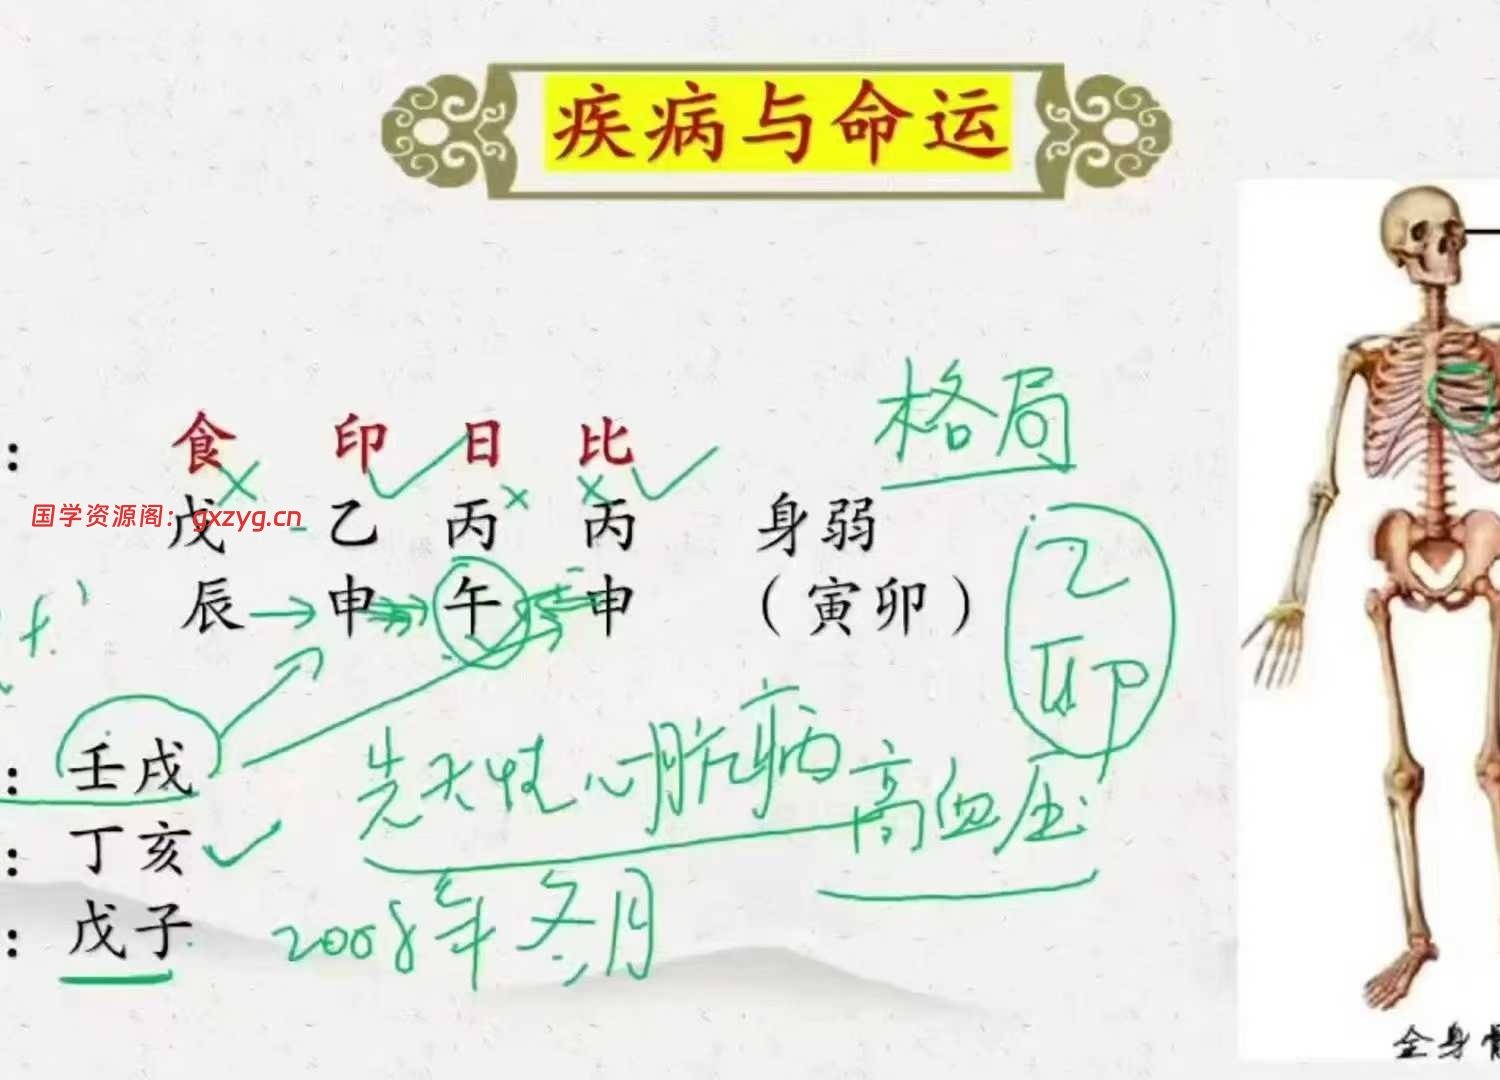 疾病与命运
格局
： 食 印 日 比
国学资源阁：gxzyg.cn
戊 乙 丙 丙 身弱
辰 申 午 申 （寅卯）
乙
卯
：壬戌
先天性心脏病 高血压
：丁亥
：戊子
2008年冬月
全身骨